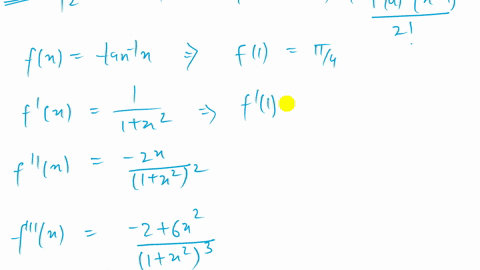 2!
f(x) = tan⁻¹x ⇒ f(1) = π/4
f'(x) = 1/(1+x²) ⇒ f'(1)
f''(x) = -2x/(1+x²)²
f'''(x) = (-2+6x²)/(1+x²)³